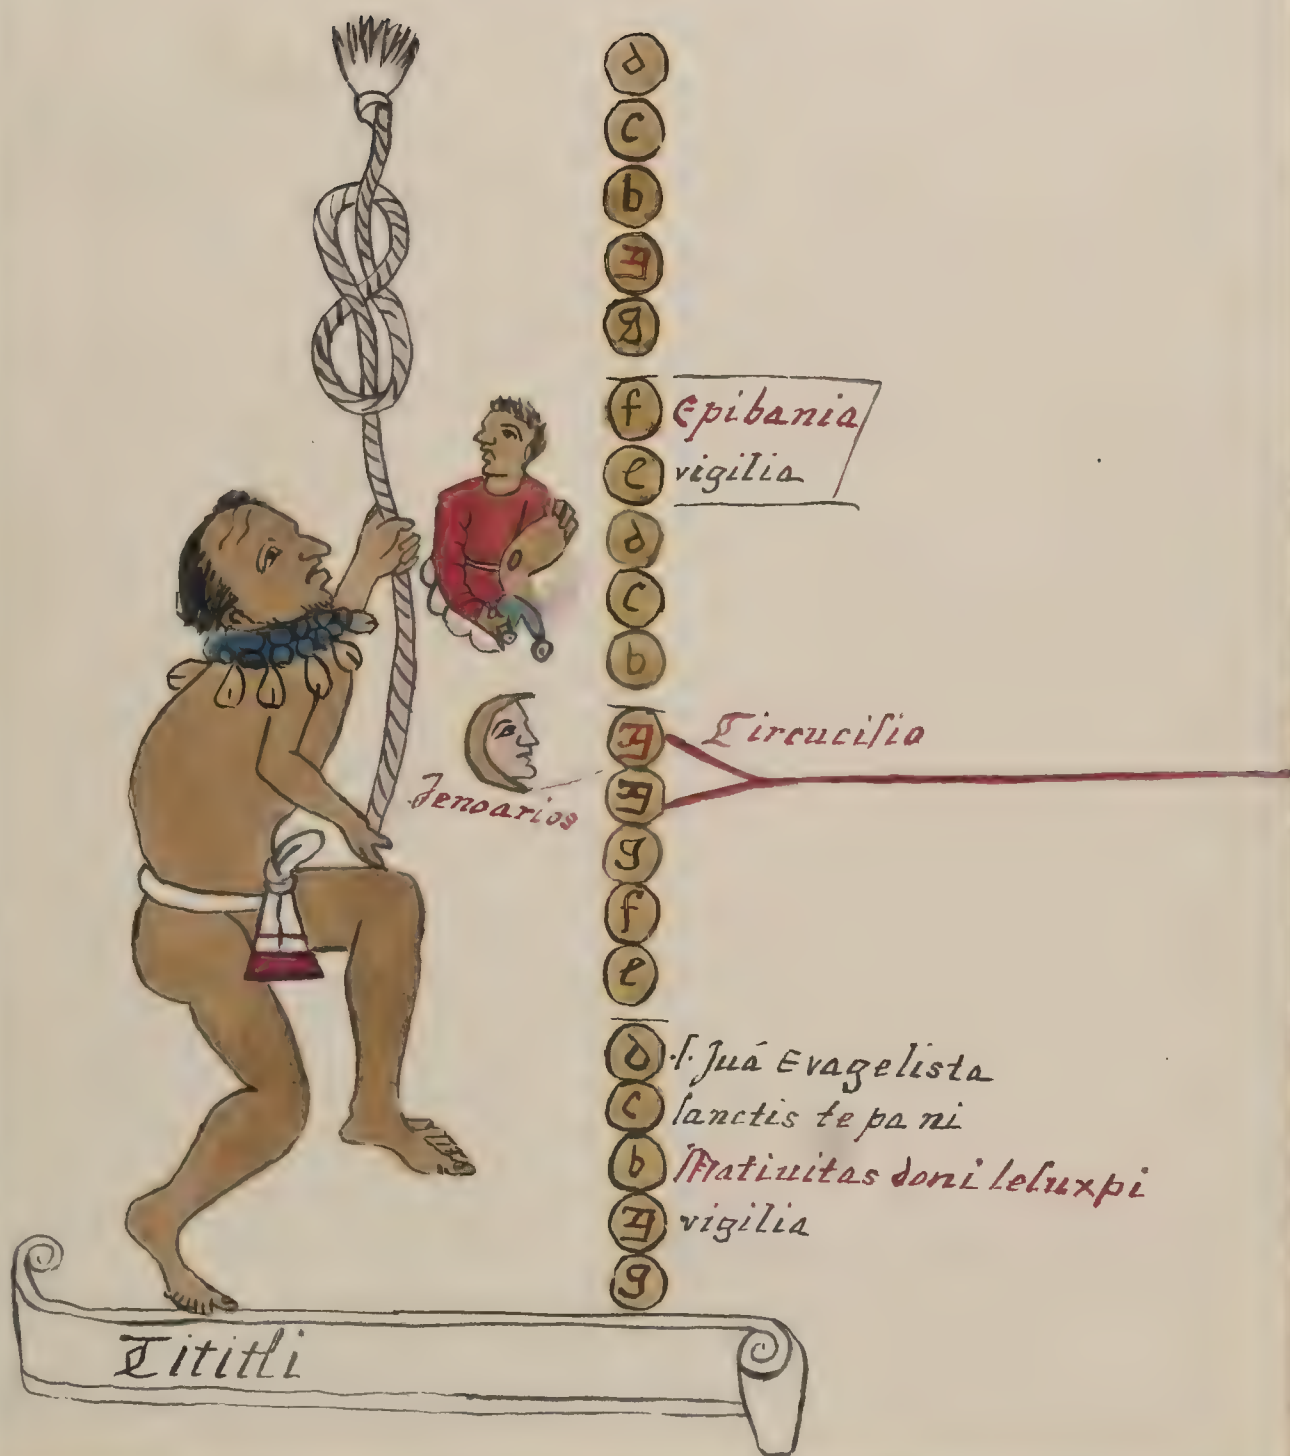 d
c
b
A
g
f Epibania
e vigilia
d
c
b
A Circuciſio
Jenoarios
A
g
f
e
d .ſ. Juá Evagelista
c ſanctis te pa ni
b Natiuitas doni Ieſuxpi
A vigilia
g
Tititli